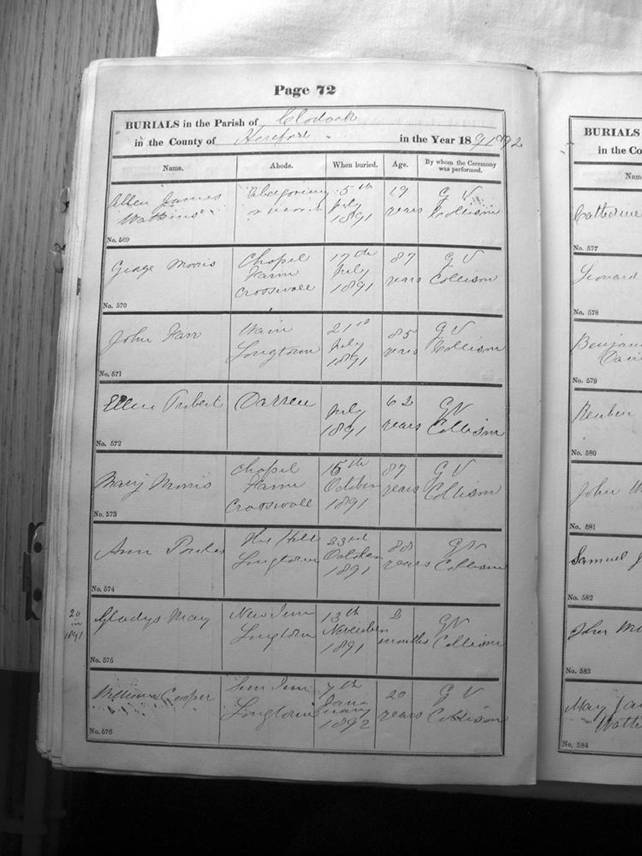 Page 72
BURIALS in the Parish of Clodock
in the County of Hereford in the Year 1891 1892
Name. Abode. When buried. Age. By whom the Ceremony was performed.
Allen James Watkins 5th July 1891 19 years G V Collison
No. 569
George Morris Chapel Farm Crosswall 17th July 1891 87 years G V Collison
No. 570
John Farr Longtown 21st July 1891 85 years G V Collison
No. 571
Ellen Darren July 1891 62 years G V Collison
No. 572
Mary Morris Chapel Farm Crosswall 15th October 1891 87 years G V Collison
No. 573
Ann Longtown 23rd October 1891 88 years G V Collison
No. 574
20 in 1891
Gladys May New Inn Longtown 13th November 1891 months G V Collison
No. 575
William Cooper Sun Inn Longtown 7th January 1892 20 years G V Collison
No. 576
BURIALS
in the Co
Nam
Catherine
No. 577
Leonard
No. 578
Benjam
No. 579
Reuben
No. 580
John
No. 581
Samuel J
No. 582
John
No. 583
May Ja
Watk
No. 584